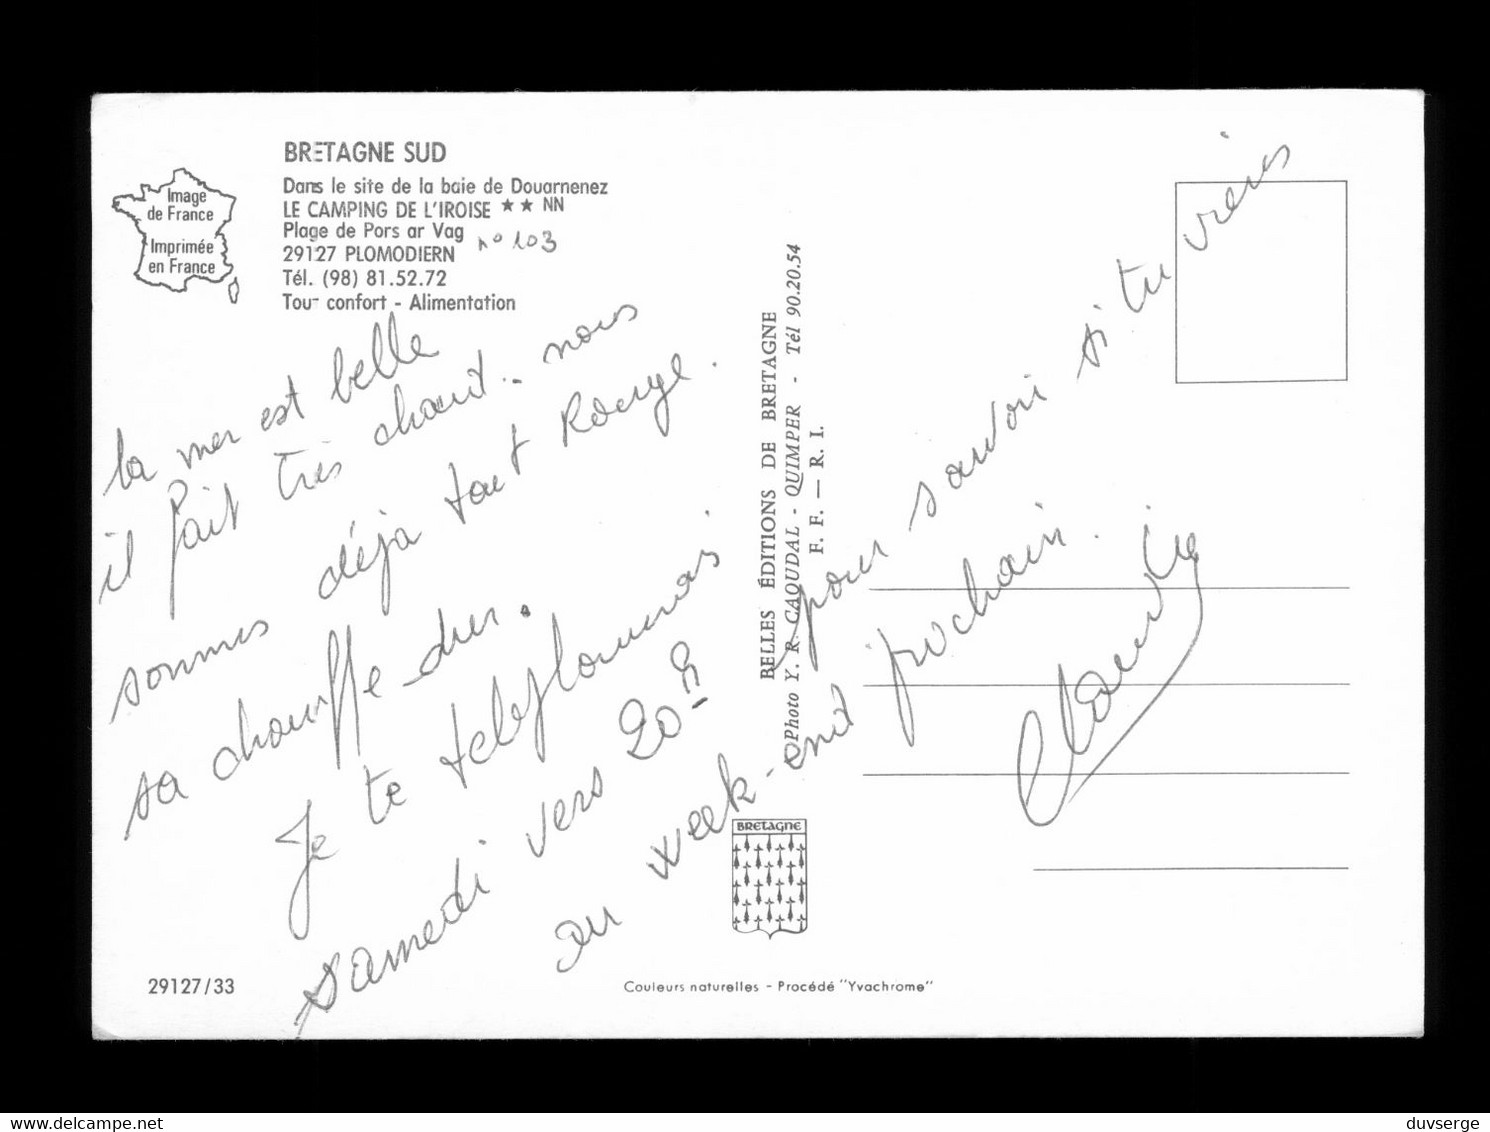 BRETAGNE SUD
Dans le site de la baie de Douarnenez
LE CAMPING DE L'IROISE ★★ NN
Plage de Pors ar Vag
29127 PLOMODIERN n° 103
Tél. (98) 81.52.72
Tout confort - Alimentation
Image
de France
Imprimée
en France
la mer est belle
il fait très chaud.. nous
sommes déjà tout Rouge.
sa chauffe dur.
Je te telephonerais
samedi vers 20 h
pour savoir si tu viens
au week-end prochain.
BELLES ÉDITIONS DE BRETAGNE
Photo Y. R. CAOUDAL - QUIMPER - Tél 90.20.54
F. F. — R. I.
BRETAGNE
29127/33
Couleurs naturelles - Procédé "Yvachrome"
delcampe.net
duvserge